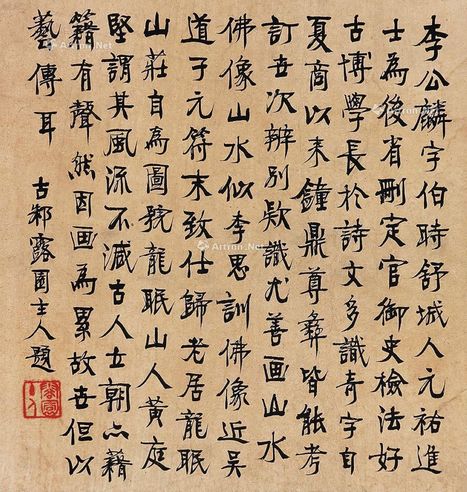 李公麟字伯時舒城人元祐進
士為後省刪定官御史檢法好
古博學長於詩文多識奇字自
夏商以来鐘鼎尊彝皆能考
訂世次辨別欵識尤善画山水
佛像山水似李思訓佛像近吴
道子元符末致仕歸老居龍眠
山莊自為圖號龍眠山人黄庭
堅謂其風流不減古人士朝亦藉
籍有聲然因画為累故世但以
藝傳耳
古鄀露園主人題
Artron.Net
Artron.Net
Artron.Net